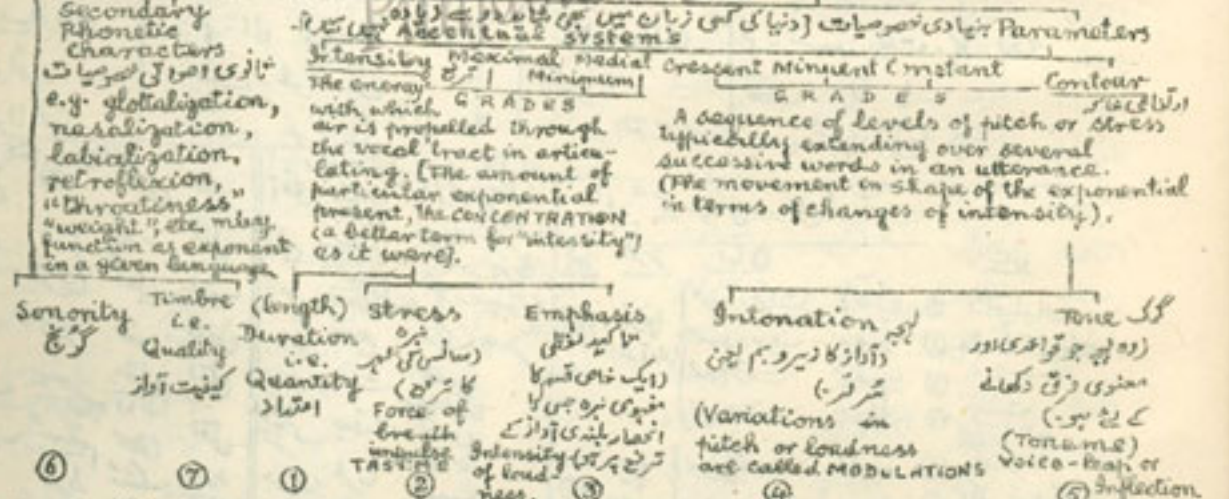 Secondary
Phonetic
Characters
ثانوی اصواتی خصوصیات
e.g. glottalization,
nasalization,
labialization,
retroflexion,
"throatiness"
"weight", etc. may
function as exponent
in a given language
بنیادی خصوصیات [دنیا کی کسی زبان میں بھی Parameters
Accentual systems
Intensity Maximal Medial
Minimum
The energy GRADES
with which
air is propelled through
the vocal tract in articu-
lating. [The amount of
particular exponential
present, the CONCENTRATION
(a better term for "intensity")
as it were].
Crescent Minuent Constant
GRADES
Contour
A sequence of levels of pitch or stress
typically extending over several
successive words in an utterance.
(The movement or shape of the exponential
in terms of changes of intensity).
Sonority
گونج
⑥
Timbre
i.e.
Quality
کیفیت آواز
⑦
(length)
Duration
i.e.
Quantity
امتداد
①
Stress
نبرہ
(سانس کی لہر
کا
Force of
breath
impulse
TASEME
②
Emphasis
تاکید لفظی
(ایک خاص قسم کا
نبرہ جس کا
انحصار بلندی آواز کے
پر ہو)
Intensity
of loud-
ness.
③
Intonation لہجہ
(آواز کا زیر و بم یعنی
(Variations in
pitch or loudness
are called MODULATIONS
④
Tone
معنوی فرق دکھانے
کے لئے ہو۔)
(Toneme)
Voice-Leap or
Inflection
⑤